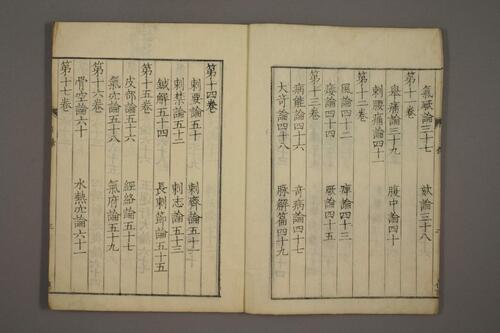 氣厥論三十七 欬論三十八
第十一卷
舉痛論三十九 腹中論四十
刺腰痛論四十一
第十二卷
風論四十二 痺論四十三
痿論四十四 厥論四十五
第十三卷
病能論四十六 奇病論四十七
大奇論四十八 脉解篇四十九
第十四卷
刺要論五十 刺齊論五十一
刺禁論五十二 刺志論五十三
鍼解五十四 長刺節論五十五
第十五卷
皮部論五十六 經絡論五十七
氣穴論五十八 氣府論五十九
第十六卷
骨空論六十 水熱穴論六十一
第十七卷